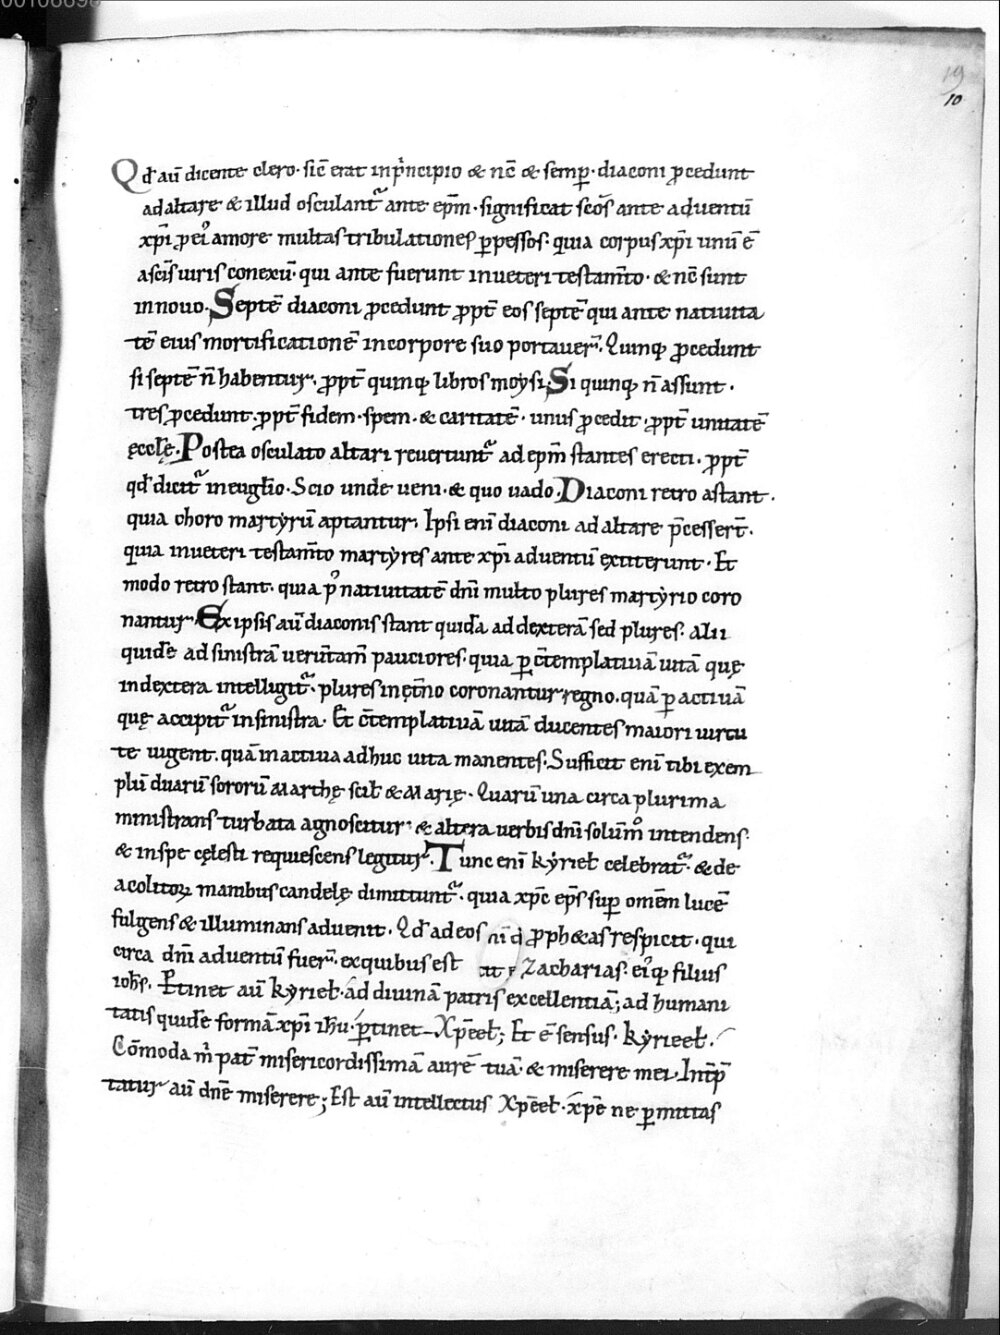 19
10
Qđ aū dicente clero· sic̄ erat inp̍ncipio & nc̄ & semꝑ· diaconi ꝓcedunt
ad altare & illud osculant᷑ ante ep̄m· significat sc̄os ante aduentū
xp̄i ꝓ ei᾽ amore multas tribulationes ꝑpessos· quia corpus xp̄i unū ē
a sc̄is uiris conexū· qui ante fuerunt in ueteri testam̄to· & nc̄ sunt
in nouo· Septē diaconi ꝓcedunt ꝓpt̄ eos septē qui ante natiuita
tē eius mortificationē in corpore suo portauer̄· Quinqꝫ ꝓcedunt
si septē n̄ habentur· ꝓpt̄ quinqꝫ libros moysi; Si quinqꝫ n̄ assunt·
tres ꝓcedunt· ꝓpt̄ fidem· spem· & caritatē· unus ꝓcedit· ꝓpt̄ unitatē
ęcclę̄· Postea osculato altari reuertunt᷑ ad ep̄m stantes erecti· ꝓpt̄
qđ dicit᷑ in euḡlio· Scio unde ueni· & quo uado· Diaconi retro astant·
quia choro martyrū aptantur· Ipsi eni diaconi ad altare p̄cessert̄·
quia in ueteri testam̄to martyres ante xp̄i aduentū extiterunt· Et
modo retro stant· quia p᾽ natiuitatē dn̄i multo plures martyrio coro
nantur· Ex ipsis aū diaconis stant quidā ad dexterā sed plures· alii
quidē ad sinistrā uerūtam̄ pauciores· quia ꝑ c̄templatiuā uitā quę
in dextera intelligit᷑· plures in ęt̄no coronantur regno· quā ꝑ actiuā
quę accipit᷑ in sinistra· Et c̄templatiuā uitā ducentes maiori uirtu
te uigent· quā in actiua adhuc uita manentes· Sufficit enī tibi exem
plū duarū sororū marthę scił & marię· Quarū una circa plurima
ministrans turbata agnoscitur· & altera uerbis dn̄i solūm᾽ intendens·
& in spe cęlesti requiescens legitur· Tunc enī kyrieł celebrat᷑· & de
acolitoꝝ manibus candelę dimittunt᷑· quia xp̄c ep̄s suꝑ omēm lucē
fulgens & illuminans aduenit· Qđ ad eos ꝓph&as respicit· qui
circa dn̄i aduentū fuer̄· ex quibus est Zacharias· ei᾽qꝫ filius
ioh̄s· Ꝑtinet aū kyrieł· ad diuinā patris excellentiā; ad humani
tatis quidē formā xp̄i ih̄u· ꝑtinet Xp̄eeł; Et ē sensus· kyrieeł·
Com̄oda m̍ pat̄ misericordissimā aurē tuā· & miserere mei· Intꝑp̄
tatur aū dn̄e miserere; Est aū intellectus Xp̄eeł· xp̄e ne ꝑmittas